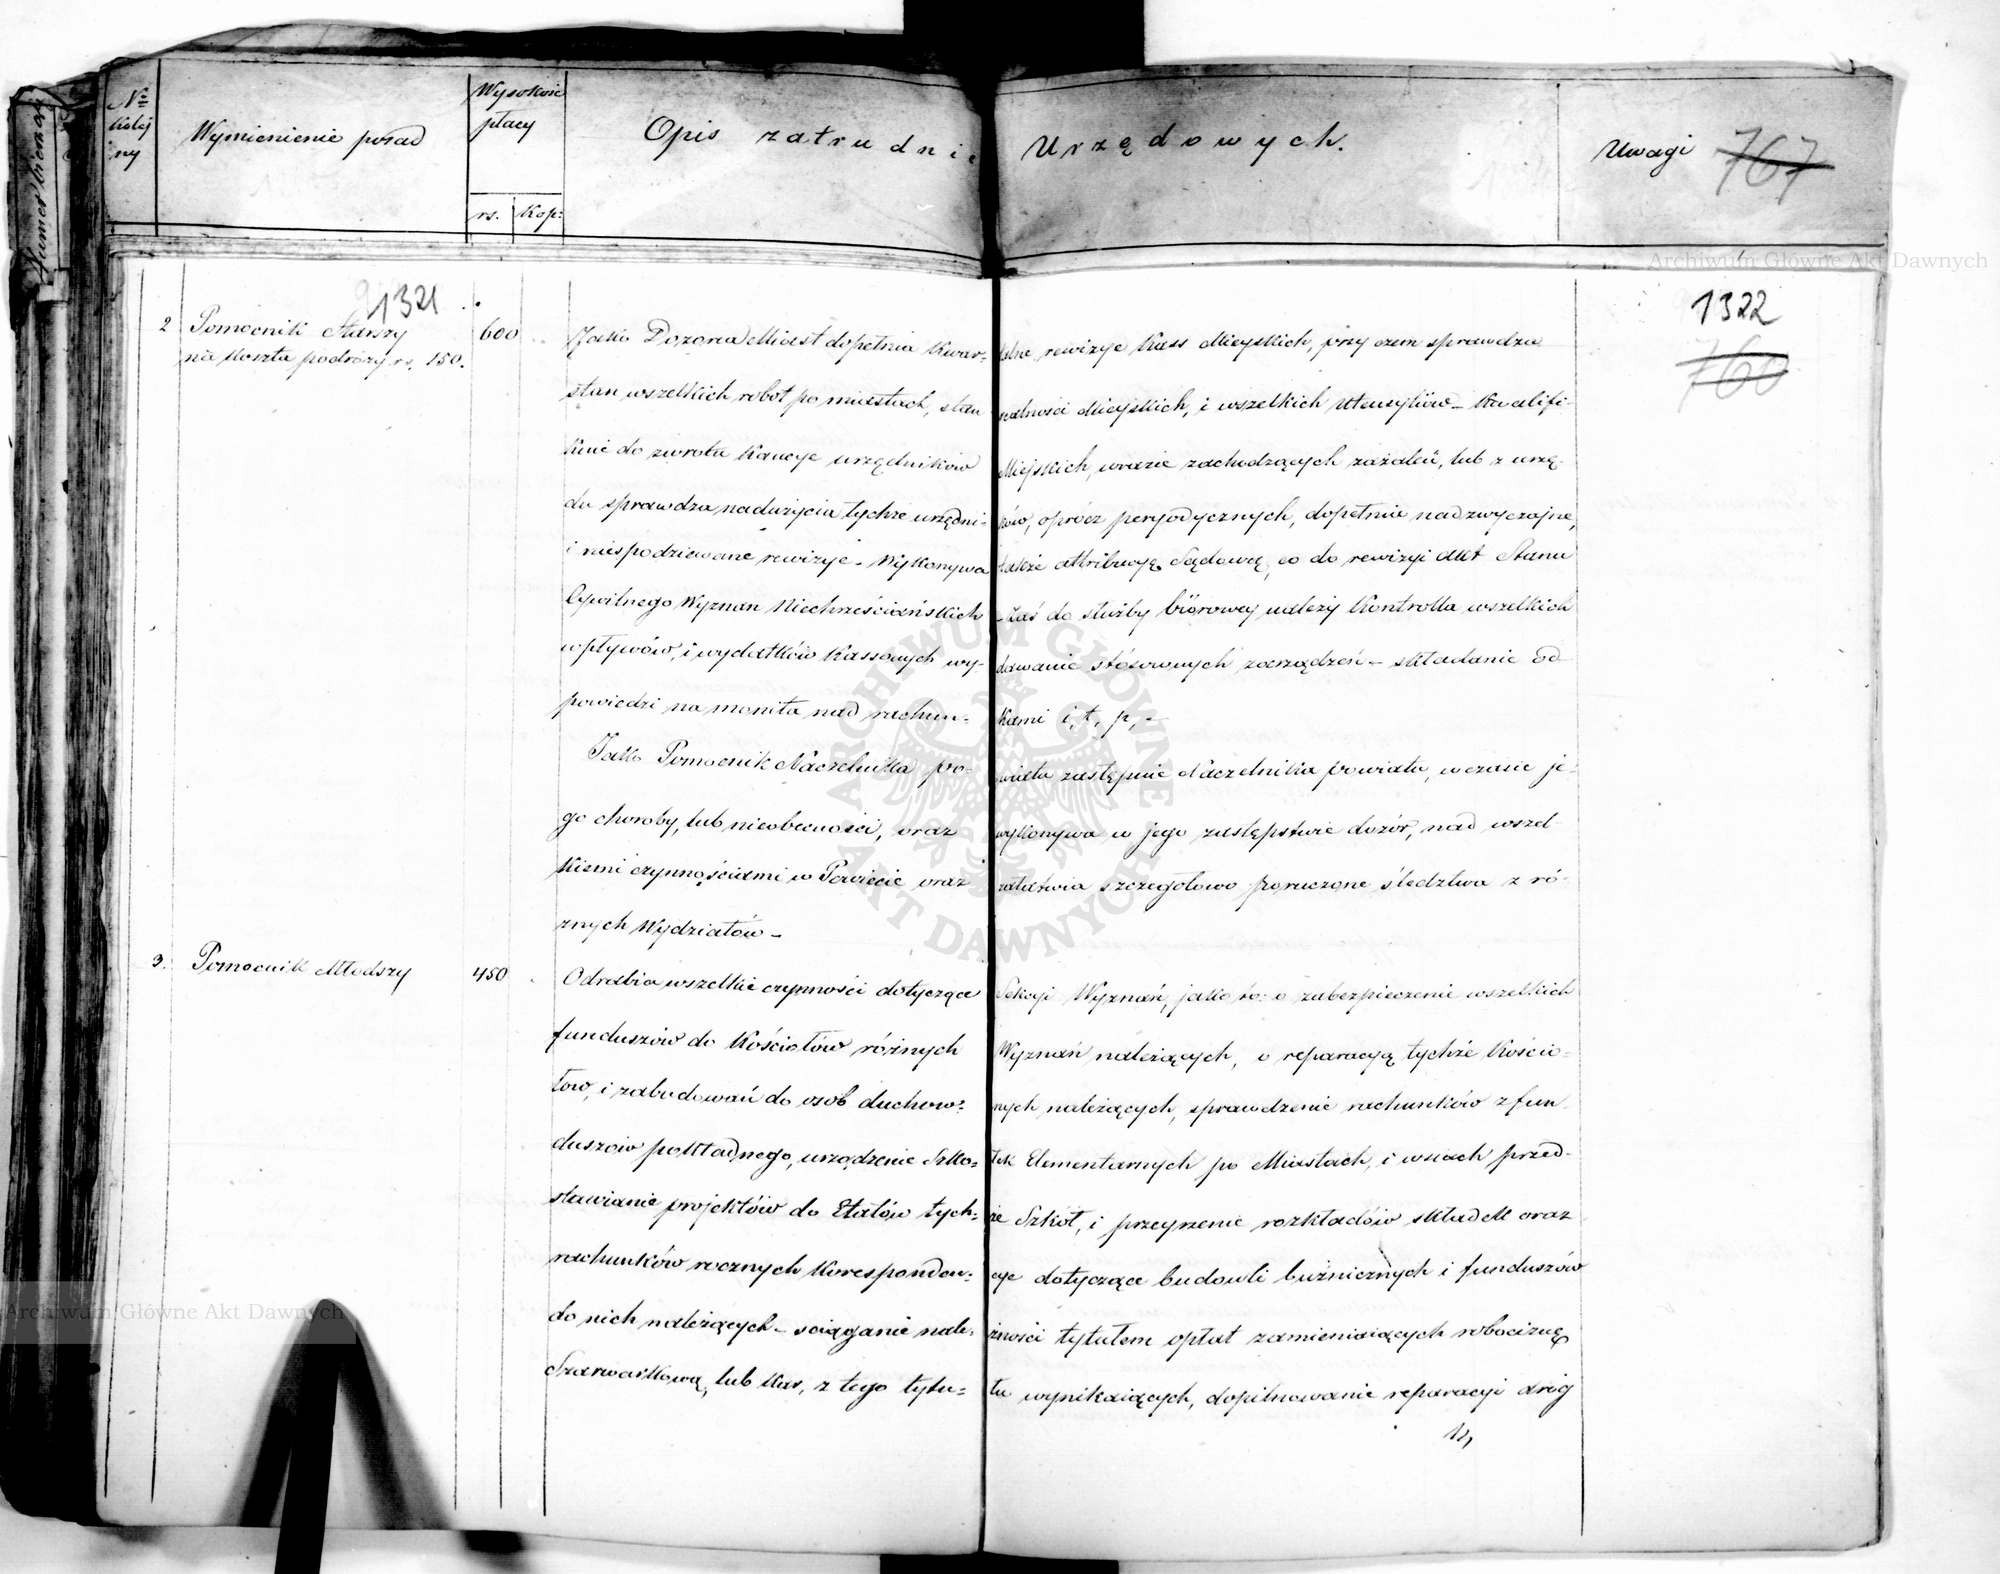 Numer bieżący
№ Kolejny
Wymienienie posad
Wysokość płacy
rs. Kop:
Opis zatrudnie Urzędowych.
Uwagi 767
1321
1322
760
2 Pomocnik Starszy 600
na koszta podróży rs. 150.
Jako Dozorca Miast dopełnia Kwar= talne rewizye Kass Mieyskich, przy czem sprawdza
stan wszelkich robot po miastach, stan realności Mieyskich, i wszelkich Utensyliów – Kwalifi-
kuie do zwrotu Kaucye urzędników Miejskich, w razie zachodzących zażaleń, lub z urzę-
du sprawdza nadużycia tychże urzędni- ków, oprócz peryodycznych, dopełnia nadzwyczajne,
i niespodziewane rewizye – Wykonywa także attribucyę Sądową, co do rewizyi Akt Stanu
Cywilnego Wyznań Niechrześciańskich – Zaś do służby biórowey należy Kontrolla wszelkich
wpływów, i wydatków Kassowych wy- dawanie stósownych zarządzeń – składanie od-
powiedzi na monita nad rachun= kami i, t, p, –
Jako Pomocnik Naczelnika po- wiatu zastępuie Naczelnika powiatu, w czasie je-
go choroby, lub nieobecności, oraz wykonywa w jego zastępstwie dozór, nad wszel-
kiemi czynnościami w Powiecie oraz załatwia szczegółowo poruczone śledztwa z ró-
żnych Wydziałów –
3. Pomocnik Młodszy 450
Odrabia wszelkie czynności dotyczące Sekcyi Wyznań, jako to: o zabezpieczenie wszelkich
funduszów do Kościołów różnych Wyznań należących, o reparacyą tychże Kościo-
łów, i zabudowań do osob duchow= nych należących, sprawdzenie rachunków z fun-
duszów pokładnego, urządzenie Szko= łek Elementarnych po Miastach, i wsiach przed-
stawianie projektów do Etatów tych= że Szkół, i przeyrzenie rozkładów składek oraz
rachunków rocznych Koresponden= cye dotyczące budowli bużnicznych i funduszów
do nich należących – sciąganie nale= żności tytułem opłat zamieniaiących robociznę
Szarwarkową, lub kar, z tego tytu= łu wynikaiących, dopilnowanie reparacyi dróg
Archiwum Główne Akt Dawnych
Archiwum Główne Akt Dawnych
ARCHIWUM GŁÓWNE AKT DAWNYCH